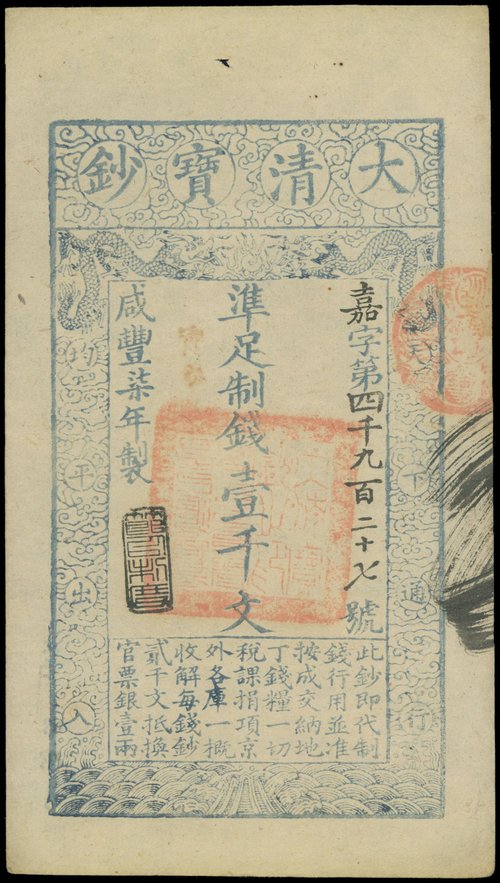 大清寶鈔
嘉字第四千九百二十七號
準足制錢壹千文
咸豐柒年製
天下通行
均平出入
此鈔即代制
錢行用並准
按成交納地
丁錢糧一切
稅課捐項京
外各庫一概
收解每錢鈔
貳千文抵換
官票銀壹兩